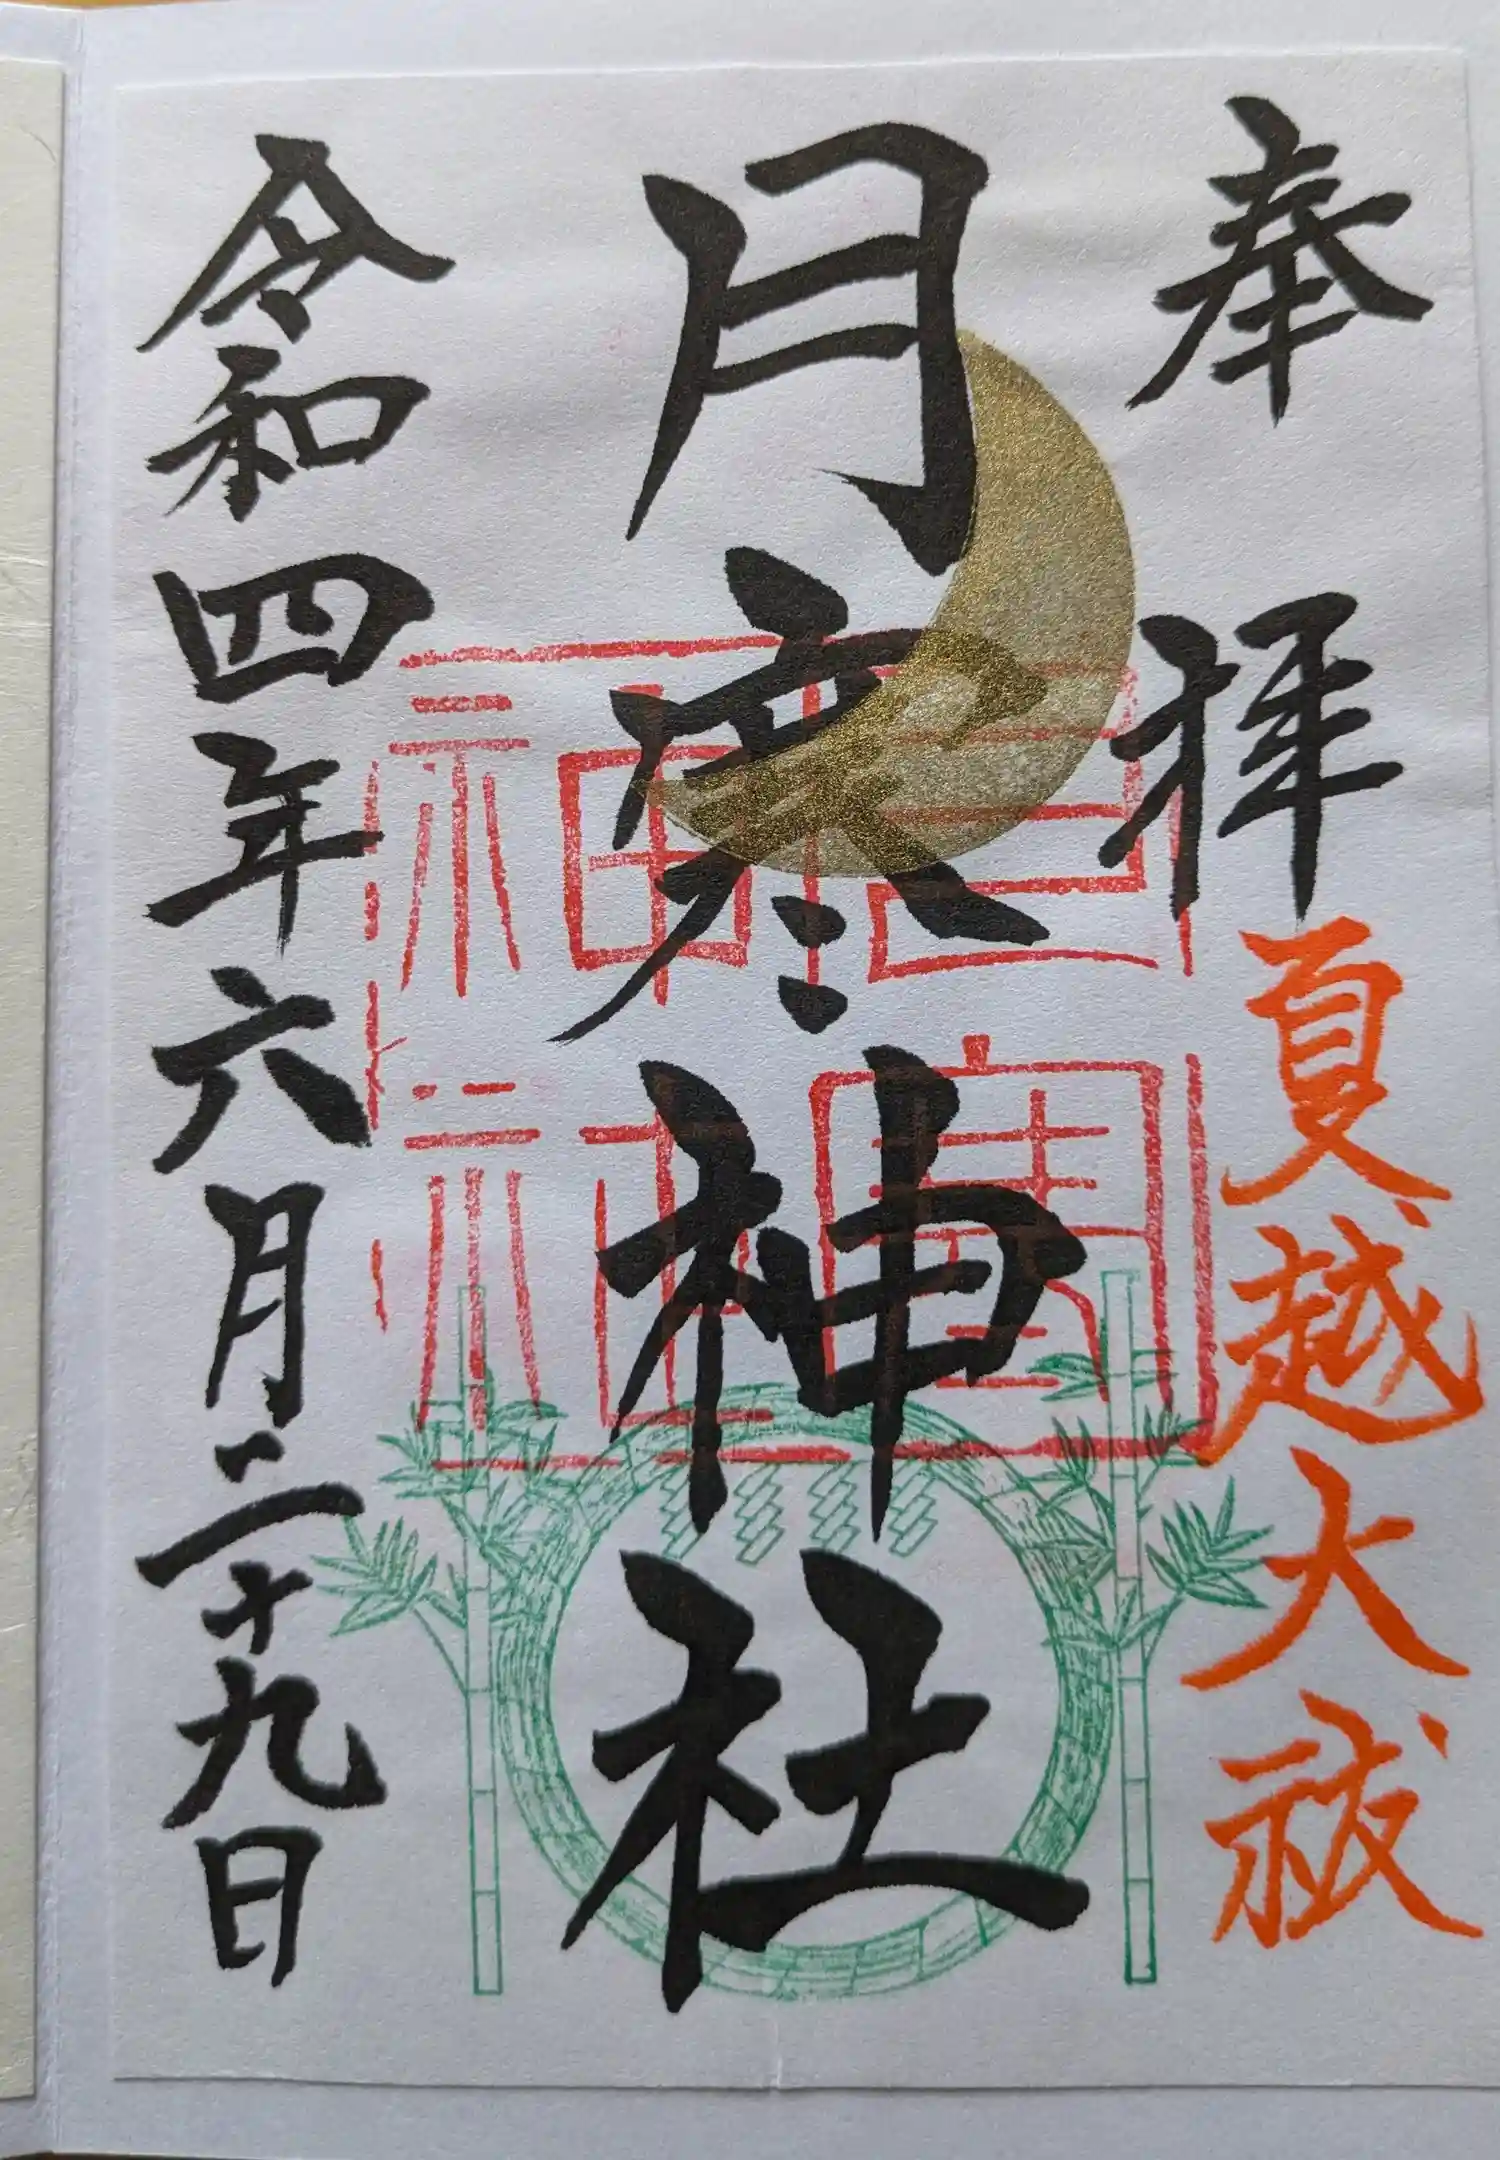 奉拝
夏越大祓
月寒神社
月寒神社
令和四年六月二十九日